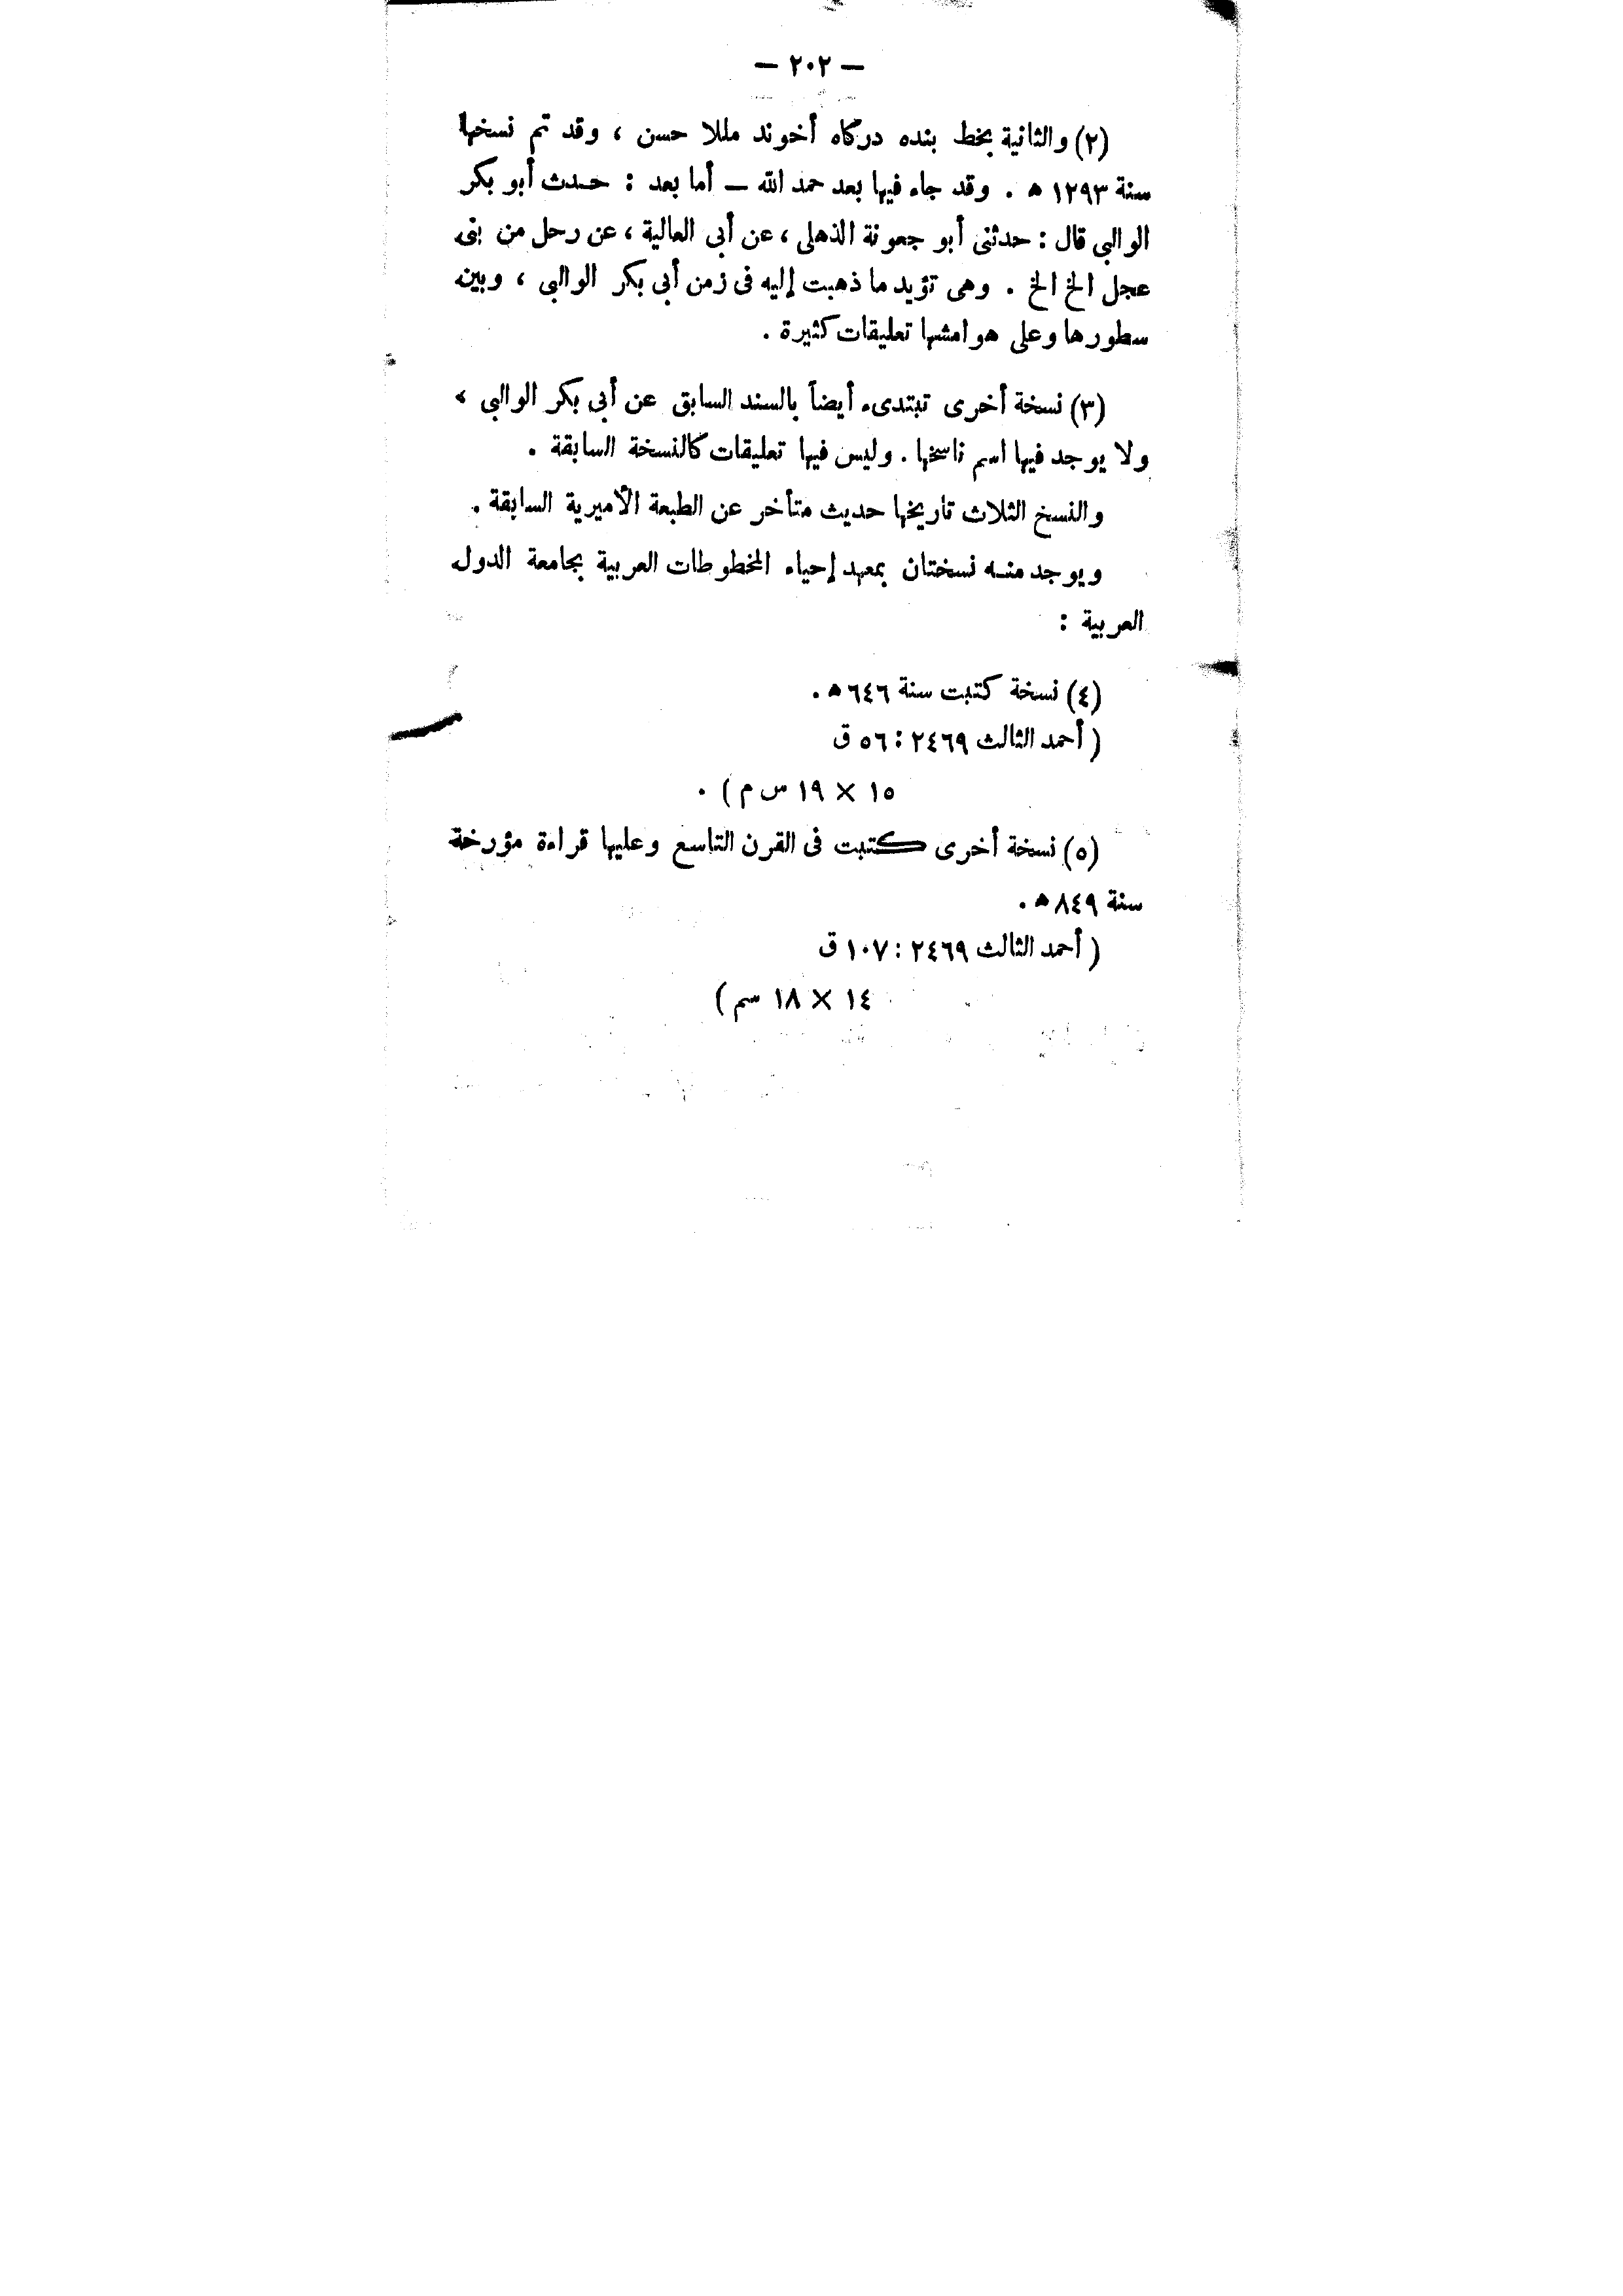 — ٢٠٢ —
(٢) والثانية بخط بنده دركاه أخوند مللا حسن ، وقد تم نسخها
سنة ١٢٩٣ ه . وقد جاء فيها بعد حمد الله — أما بعد : حدث أبو بكر
الوالبى قال : حدثنى أبو جعونة الذهلى ، عن أبى العالية ، عن رحل من بنى
عجل الخ الخ . وهى تؤيد ما ذهبت إليه فى زمن أبى بكر الوالبى ، وبين
سطورها وعلى هوامشها تعليقات كثيرة .
(٣) نسخة أخرى تبتدىء أيضاً بالسند السابق عن أبى بكر الوالبى ،
ولا يوجد فيها اسم ناسخها . وليس فيها تعليقات كالنسخة السابقة .
والنسخ الثلاث تاريخها حديث متأخر عن الطبعة الأميرية السابقة .
ويوجد منه نسختان بمعهد إحياء المخطوطات العربية بجامعة الدول
العربية :
(٤) نسخة كتبت سنة ٦٤٦ ه .
( أحمد الثالث ٢٤٦٩ : ٥٦ ق
١٥ × ١٩ س م ) .
(٥) نسخة أخرى كتبت فى القرن التاسع وعليها قراءة مؤرخة
سنة ٨٤٩ ه .
( أحمد الثالث ٢٤٦٩ : ١٠٧ ق
١٤ × ١٨ سم )